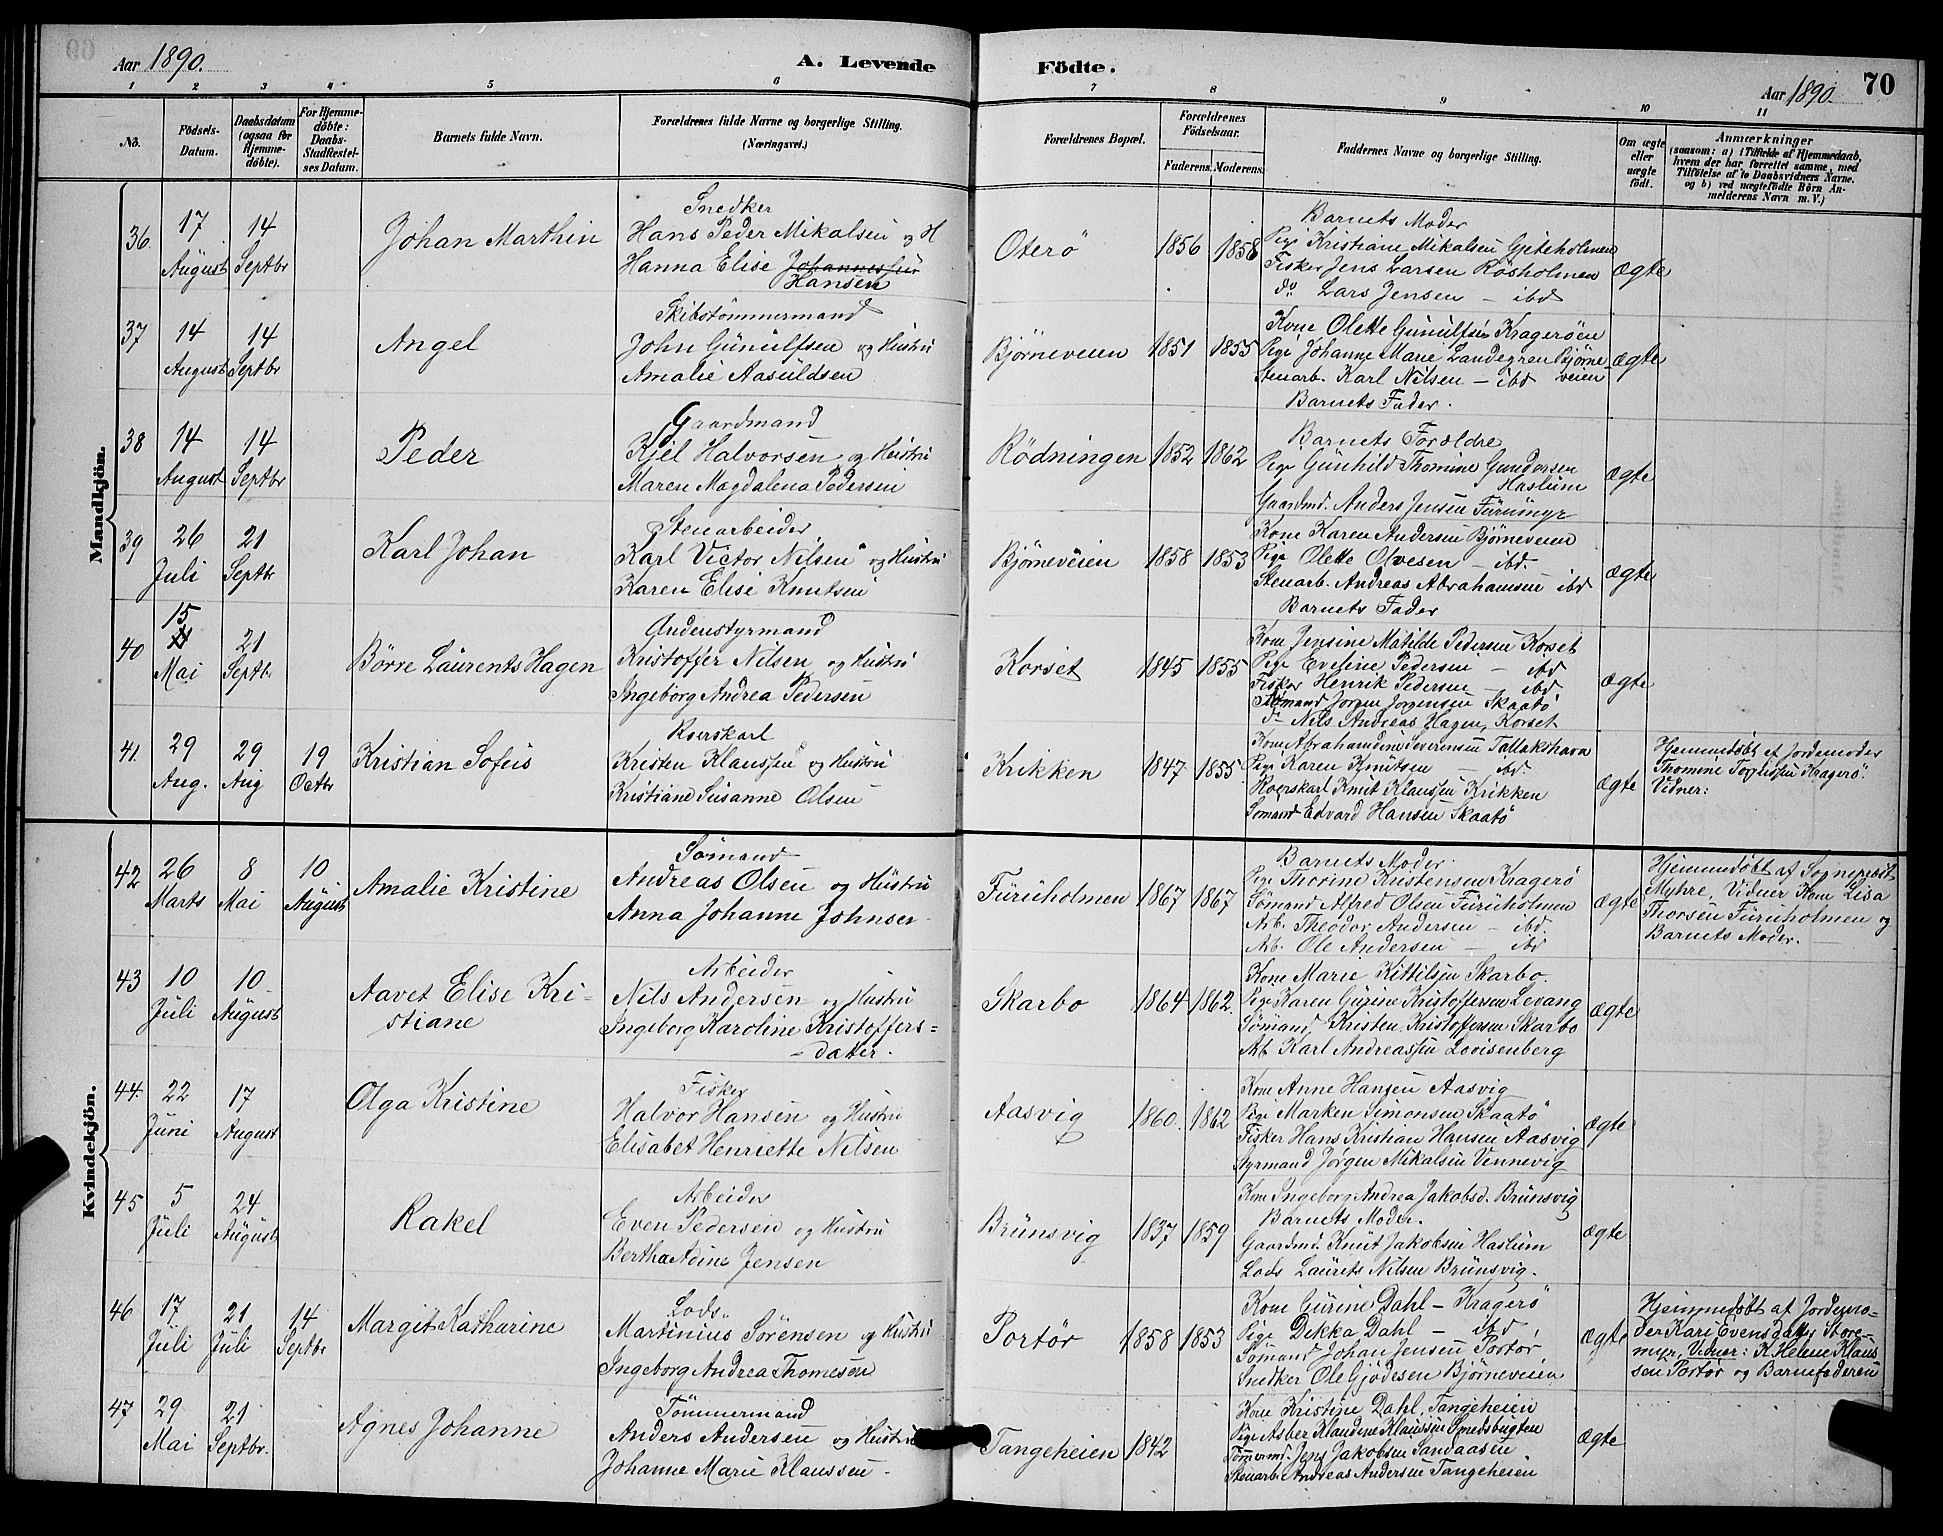 Aar 1890.
A. Levende Födte.
Aar 1890. 70
1 2 3 4 5 6 7 8 9 10 11
No. Födsels-Datum. Daabsdatum (ogsaa for Hjemmedöbte). For Hjemmedöbte: Daabs-Stadfæstelses Datum. Barnets fulde Navn. Forældrenes fulde Navne og borgerlige Stilling. (Næringsvei.) Forældrenes Bopæl. Forældrenes Födselsaar. Faderens. Moderens. Faddernes Navne og borgerlige Stilling. Om ægte eller uægte födt. Anmærkninger (saasom: a) i Tilfælde af Hjemmedaab, hvem der har forrettet samme, med Tilföielse af to Daabsvidners Navne, og b) ved uægtefödte Börn Anmelderens Navn m. V.)
Mandkjön.
36. 17 August 14 Septbr Johan Marthin
Snedker
Hans Peder Mikalsen og H
Hanna Elise Johannessen
Hansen
Oterö 1856 1858
Barnets Moder
Pige Kristiane Mikalsen Gjeteholmen
Fisker Jens Larsen Rösholmen
do Lars Jensen – ibd
ægte
37 14 August 14 Septbr Angel
Skibstømmermand
John Gunulfsen og Hustru
Amalie Aasuldsen
Bjørneveien 1851 1855
Kone Olette Gunulfsen Kragerøen
Pige Johanne Marie Landegren Bjørne-
Stenarb. Karl Nilsen – ibd veien
Barnets Fader.
ægte
38 14 August 14 Septbr Peder
Gaardmand
Kjel Halvorsen og Hustru
Maren Magdalena Pedersen
Rödningen 1852 1862
Barnets Forældre
Pige Gunhild Thomine Gundersen
Haslum
Gaardmd. Anders Jensen Furumyr
ægte
39 26 Juli 21 Septbr Karl Johan
Stenarbeider
Karl Victor Nilsen og Hustru
Karen Elise Knutsen
Bjørneveien 1858 1853
Kone Karen Andersen Bjørneveien
Pige Olette Olvesen – ibd.
Stenarb. Andreas Abrahamsen ibd
Barnets Fader
ægte
40 15 Mai 21 Septbr Börre Laurents Hagen
Andenstyrmand
Kristoffer Nilsen og Hustru
Ingeborg Andrea Pedersen
Korset 1845 1855
Kone Jensine Matilde Pedersen Korset
Pige Eveline Pedersen – ibd
Fisker Henrik Pedersen – ibd
Sømand Jørgen Jørgensen Skaatö
do Nils Andreas Hagen, Korset
ægte
41. 29 Aug. 29 Aug 19 Octbr Kristian Sofus
Roerskarl
Kristen Klaussen og Hustru
Kristiane Susanne Olsen
Krikken 1847 1855
Kone Abrahamine Severinsen Tallakshavn
Pige Karen Knutsen – ibd.
Roerskarl Knut Klaussen Krikken
Sömand Edvard Hansen Skaatö
ægte
Hjemmedøbt af Jordemoder
Thomine Torgersen Kragerö.
Vidner:
Kvindekjön.
42 26 Marts 8 Mai 10 August Amalie Kristine
Sömand
Andreas Olsen og Hustru
Anna Johanne Johnsen
Furuholmen 1867 1867
Barnets Moder.
Pige Thorine Kristensen Kragerö
Sömand Alfred Olsen Furuholmen
Arb. Theodor Andersen – ibd.
Arb. Ole Andersen – ibd
ægte
Hjemmedöbt af Sogneprest
Myhre, Vidner Kone Lisa
Thorsen Furuholmen og
Barnets Moder.
43 10 Juli 10 August Aavet Elise Kri-
stiane
Arbeider
Nils Andersen og Hustru
Ingeborg Karoline Kristoffers-
datter.
Skarbo 1864 1862
Kone Marie Kittilsen Skarbo.
Pige Karen Gurine Kristoffersen Levang
Sömand, Kristen Kristoffersen Skarbo
Arb. Karl Andreassen Lovisenberg
ægte
44. 22 Juni 17 August Olga Kristine
Fisker
Halvor Hansen og Hustru
Elisabet Henriette Nilsen
Aasvig 1860. 1862
Kone Anne Hansen Aasvig
Pige Marken Simonsen Skaatö
Fisker Hans Kristian Hansen Aasvig
Styrmand Jørgen Mikalsen Vennevig
ægte
45 5 Juli 24 August Rakel
Arbeider
Even Pedersen og Hustru
Bertha Jensen
Brunsvig 1837 1859
Kone Ingeborg Andrea Jakobsd. Brunsvig
Barnets Moder.
Gaardmd. Knut Jakobsen Haslum
Lods Laurits Nilsen Brunsvig.
ægte
46 17 Juli 21 Juli 14 Septbr Margit Katharine
Lods
Martinius Sörensen og Hustru
Ingeborg Andrea Thomesen
Portør 1858 1853
Kone Gurine Dahl – Kragerö
Pige Dekka Dahl – ibd
Sømand Johan Jensen Portør
Snedker Ole Gjödesen Bjørneveien
ægte
Hjemmedöbt af Jordemo-
der Kari Evensdatter Store-
myr, Vidner: K. Helene Klaus
sen Portør og Barnefaderen
47 29 Mai 21 Septbr. Agnes Johanne
Tömmermand
Anders Andersen og Hustru
Johanne Marie Klaussen
Tangeheien 1842
Kone Kristine Dahl, Tangeheien
Pige Asber Klandine Klausen Smedsbugten
Tømmermd. Jens Jakobsen Sandaasen
Stenarb. Andreas Andersen Tangeheien
ægte